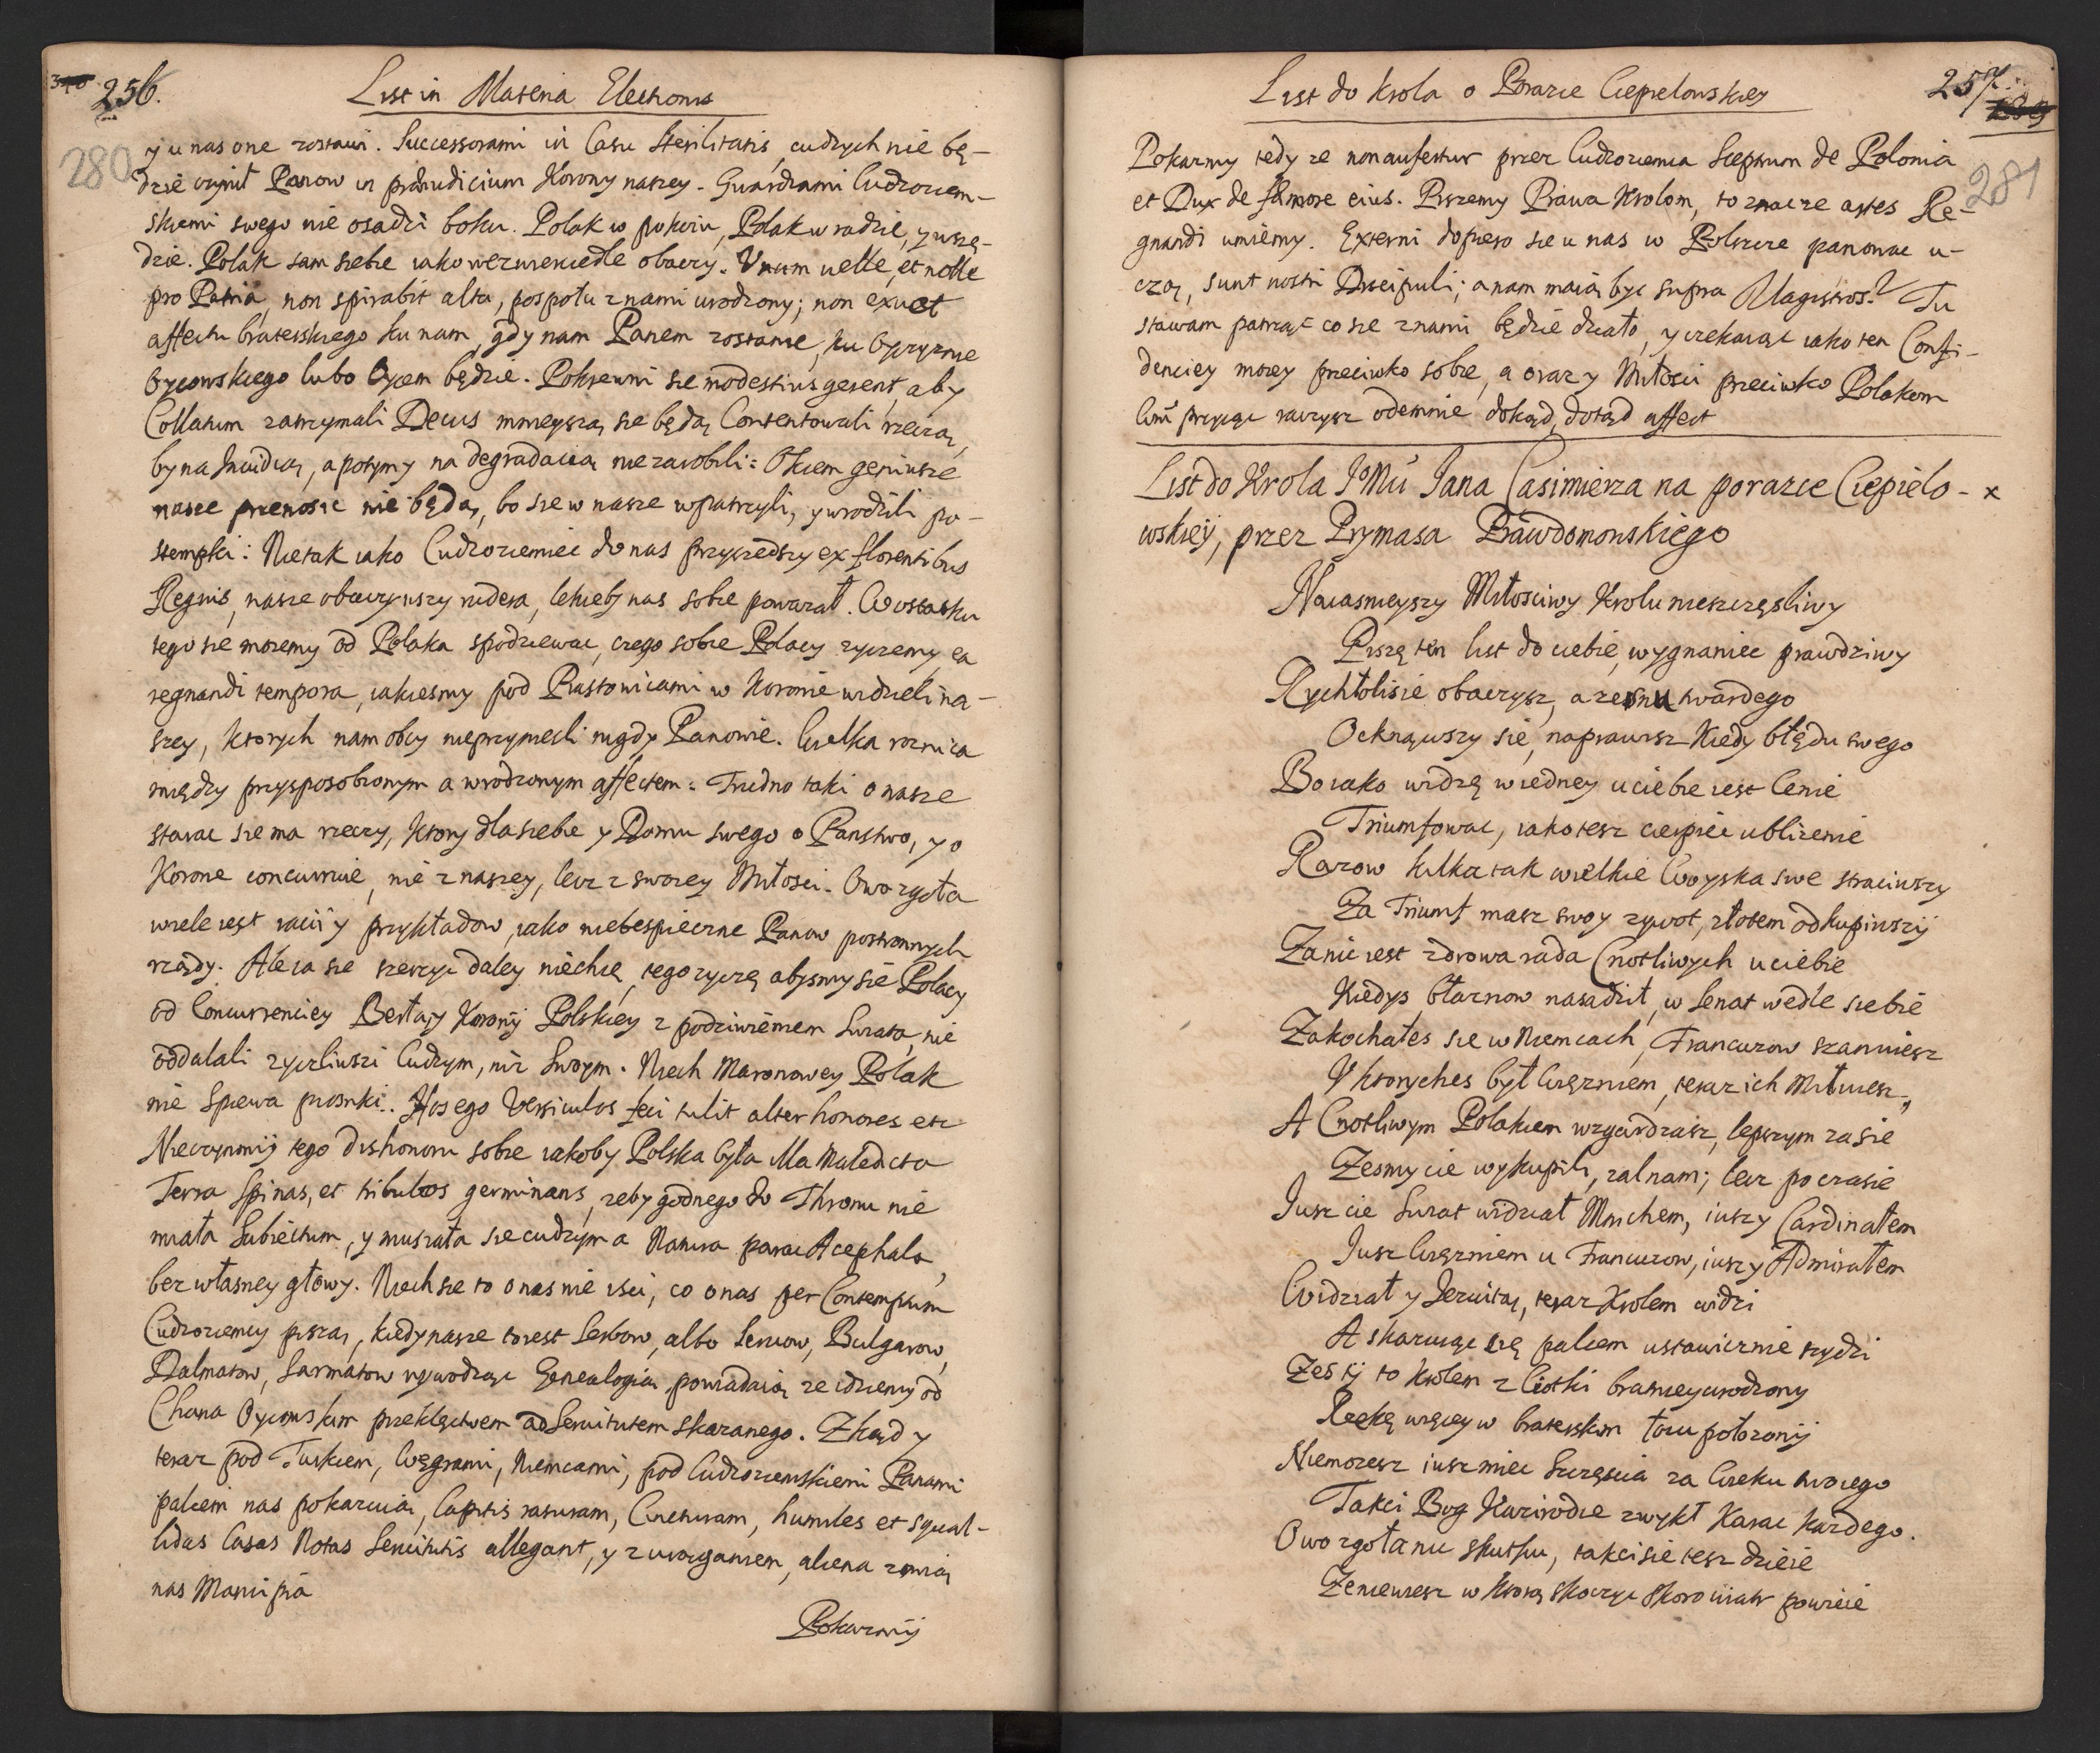 256.
List in Materia Electionis
280
y u nas one zostawi. Successorami in Casu Sterilitatis, cudzych nie bę-
dzie czynił Panow in praeiudicium Korony naszey. Guardiami Cudzoziem-
skiemi swego nie osadzi boku. Polak w pokoiu, Polak w radzie, y wszę-
dzie. Polak sam siebie iako wezwierciedle obaczy. Unum uelle, et nolle
pro Patria, non spirabit alta, pospołu z nami urodzony; non exuet
affectu braterskiego ku nam, gdy nam Panem zostanie, ku Oyczyznie
Oycowskiego lubo Oycem będzie. Pokrewni sie modestius gerent, aby
Collatum zatrzymali Decus mnieyszą sie będą Contentowali rzeczą,
by na Inuidią, a potym y na degradacią niezarobili: Okiem geniusze
nasze przenosic nie będą, bo sie w nasze wpatrzyli, y wrodzili po-
stempki: Nie tak iako Cudzoziemiec do nas przyszedszy ex florentibus
Regnis, nasze obaczywszy rudera, lekceby nas sobie powazał. W ostatku
tego sie mozemy od Polaka spodziewac, czego sobie Polacy zyczemy, ea
regnandi tempora, iakiesmy pod Piastowicami w Koronie widzieli na-
szey, ktorych nam obcy nieprzyniesli nigdy Panowie. Wielka roznica
między przysposobionym a wrodzonym affectem: Trudno taki o nasze
starac sie ma rzeczy, ktory dla siebie y Domu swego o Panstwo, y o
Korone concurruie, nie z naszey, lecz z swoiey Miłosci. Owo zgoła
wiele iest racij y przykładow, iako niebespieczne Panow postronnych
rządy. Ale ia sie szerzyc daley niechcę, tego zyczę abysmy sie Polacy
od Concurrenciey Berłay Korony Polskiey z podziwieniem Swiata, nie
oddalali zyczliwszi Cudzym, niz Swoym. Niech Maronowey Polak
nie Spiewa piosnki: Hos ego Versiculos feci tulit alter honores etc
Nieczynmij tego dishonoru sobie iakoby Polska była illa Maledicta
Terra Spinas, et tribulos germinans, zeby godnego do Thronu nie
miała Subiectum, y musiała sie cudzym a Natura parae Acephala,
bez własney głowy. Niech sie to o nas nie isci, co o nas per Contemptum
Cudzoziemcy piszą, kiedy nasze to iest Serbow, albo Seruow, Bulgarow,
Dalmatow, Sarmatow wywodząc Genealogią, powiadaią ze idziemy od
Chana Oycowskim przeklęctwem ad Seruitutem skazanego. Zkąd y
teraz pod Turkiem, Węgrami, Niemcami, pod Cudzoziemskiemi Panami
palcem nas pokazuią, Capitis rasuram, Cincturam, humiles et squal-
lidas Casas Notas Seruitutis allegant, y z urąganiem, aliena zowią
nas Mancipia
Pokazmij
List do Krola o Porazce Ciepielowskiey
257.
281
Pokazmy tedy ze non aufertur przez Cudzoziemca Sceptrum de Polonia
et Dux de femore eius. Piszemy Prawa Krolom, to znac ze artes Re-
gnandi umiemy. Externi dopiero sie u nas w Polszcze panowac u-
czą, sunt nostri Discipuli; a nam maią byc supra Magistros? Tu
stawam patrząc co sie z nami będzie działo, y czekaiąc iako ten Confi-
denciey moiey przeciwko sobie, a oraz y Miłosci przeciwko Polakom
przyiąc raczysz odemnie dokąd, dotąd affect
List do Krola JoMci Jana Casimierza na porazce Ciepielo-
wskiey, przez Prymasa Prawdomowskiego
Naiasnieyszy Miłosciwy Krolu nieszczęsliwy
Piszę ten list do ciebie, wygnaniec prawdziwy
Rychtolisie obaczysz, a ze snu twardego
Ocknąwszy się, naprawisz Kiedy błędu swego
Bo iako widzę w iedney u ciebie iest Cenie
Triumfowac, iako tesz cierpiec ubliżenie
Razow kilka tak wielkie Woyska swe straciwszy
Za Triumf masz swoy zywot, złotem odkupiwszij
Zanic iest zdrowa rada Cnotliwych u ciebie
Kiedys błaznow nasadził, w Senat wedle siebie
Zakochałes sie w Niemcach, Francuzow szanuiesz
U ktorychès był Więzniem, teraz ich Miłuiesz,
A Cnotliwym Polakiem wzgardzasz, lepszym zasie
Zesmy cie wykupili, zal nam; lecz po czasie
Jusz cie Swiat widział Mnichem, iusz y Cardinałem
Jusz Więzniem u Francuzow, iusz y Admirałem
Widział y Jezuitą, teraz Krolem widzi
A skazuiąc się palcem ustawicznie szydzi
Zes ty to Krolem z Ciotki brateyurodzony
Rzekę więcey w braterskim łozu połozonij
Niemozesz iusz miec Szczęscia za Wieku twoiego
Takci Bog Kazirodce zwykł Karac kazdego.
Owo zgoła nic skutku, takci sie tesz dzieie
Ze niewiesz w ktorą skoczyc skoro wiatr powieie